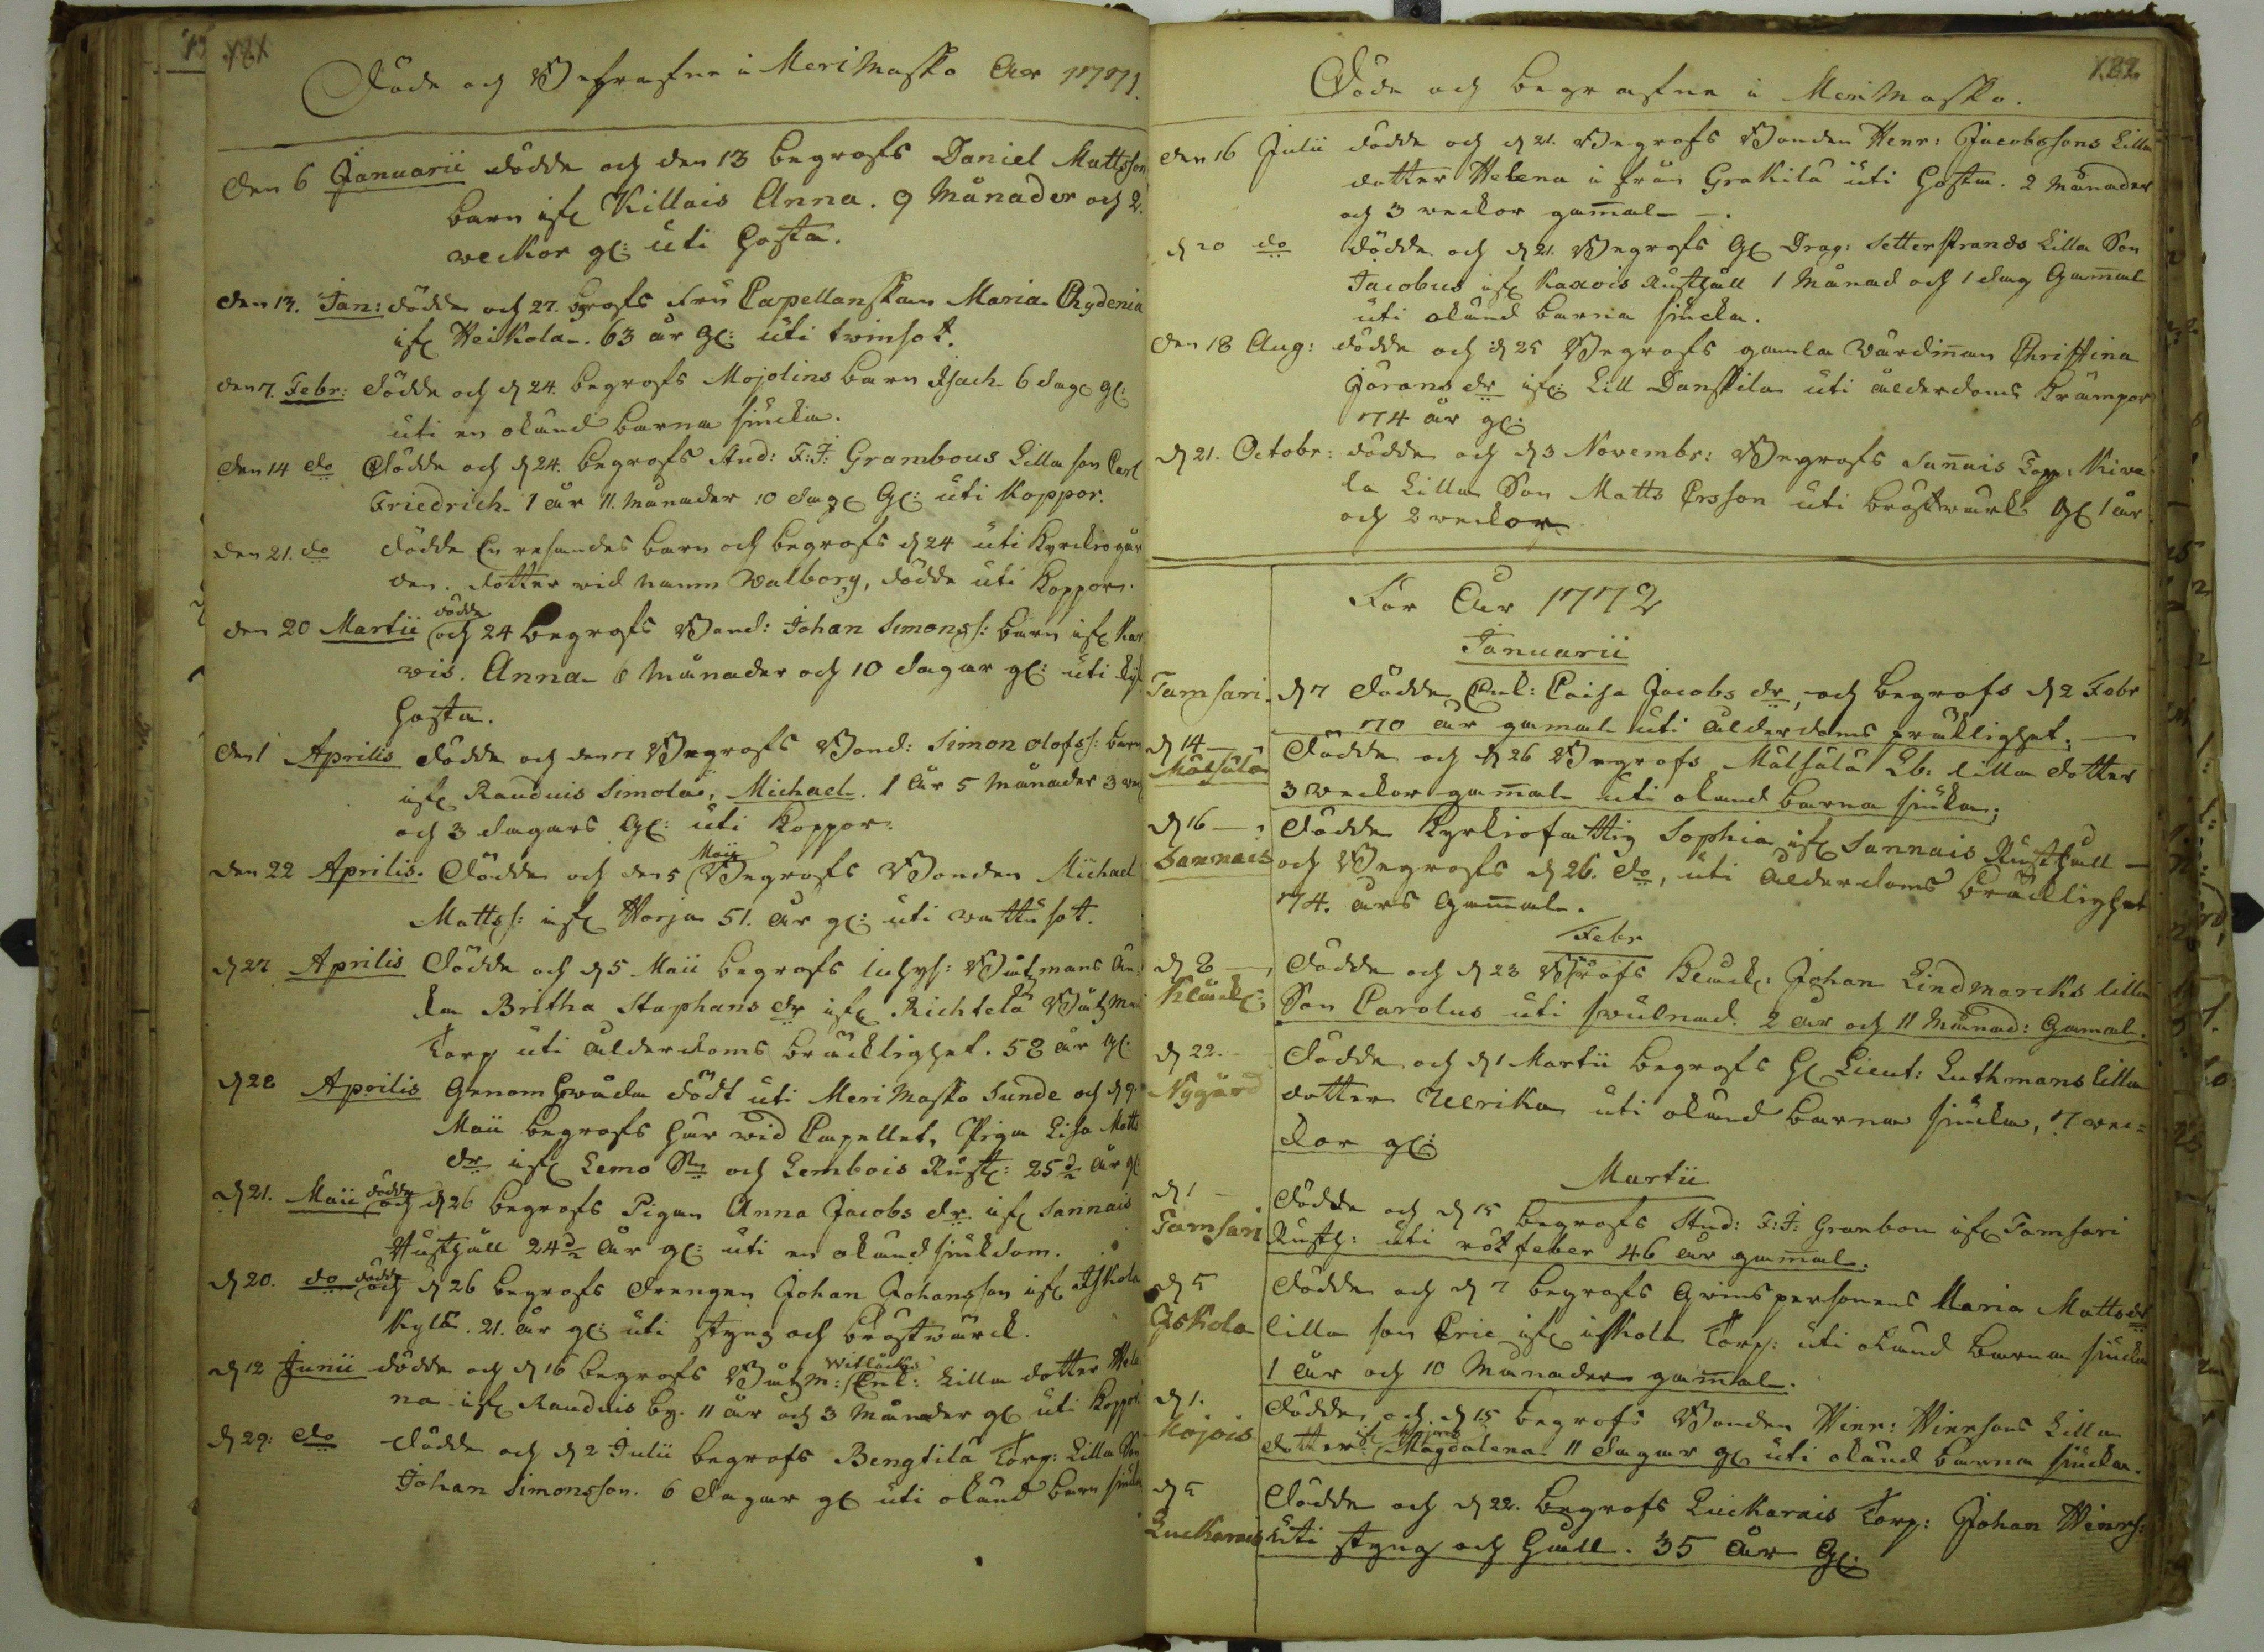 181
Döde och Begrafne i MeriMasko Åhr 1771.
den 6 Januarii dödde och den 13 begrofs Daniel Mattsson
barn ifr Killais Anna. 9 Månader och 2.
weckor gl: uti Hosta.
den 13. Jan: dödde och 27. begrofs Fru Capellanskan Maria Rydenia
ifr Heikola. 63 år gl: uti twinsot.
den 7. Febr: dödde och d 24. begrofs Mojolins barn Isach 6 dag: gl:
uti en okänd barna siucka.
den 14 do Dödde och d 24. begrofs Stud: F: F: Grambous Lilla son Carl
Friedrich 1 år 11. månader 10 dag: gl: uti Koppor.
den 21. do dödde En resandes barn och begrofs d 24 uti Kyrckiogår
den. dotter wid namn Walborg, dödde uti Koppor.
dödde
den 20 Martii och 24 begrofs Bond: Johan Simonss: barn ifr Kar
wis. Anna 8 Månader och 10 dagar gl: uti
Hosta.
den 1 Aprilis dödde och den 7 Begrofs Bond: Simon Olofss: barn
ifr Rauduis Simola, Michael. 1 år 5 månader 3 wec
och 3 dagars gl: uti Koppor.
Maii
den 22 Aprilis. Dödde och den 5 Begrofs Bonden Michael
Mattss: ifr Horja 51. år gl: uti wattusot.
d 27 Aprilis Dödde och d 5 Maii begrofs Båtzmans En:
kan Britha Staphans dr ifr Richtelä Båtzmans
Torp uti ålderdoms bräcklighet. 58 år gl:
d 28 Aprilis Genom Hwåda dödt uti MeriMasko Sunde och d 9.
Maii begrofs här wid Capellet, Pigan Lisa Matts
dr ifr Lemo Sn och Lembois Rust: 25 ½ år gl:
dödde
d 21. Maii och d 26 begrofs Pigan Anna Jacobs dr ifr Sannais
Rusthåll 24 ½ år gl: uti en okänd siukdom.
dödde
d 20. do och d 26 begrofs drengen Johan Johansson ifr Iskola
Kylä. 21. år gl: uti styng och bröstwärck.
Witlächs
d 12 Junii dödde och d 16 begrofs Båtzm: Enl: Lilla dotter Hele
na ifr Rauduis by. 11 år och 3 Månader gl uti Koppor.
d 29: do dödde och d 2 Julii begrofs Bengtilä Torp: Lilla Son
Johan Simonsson. 6 dagar gl uti okänd barn siucka
182
Döde och begrafne i MeriMasko.
den 16 Julii dödde och d 21. Begrofs Bonden Henr: Jacobssons Lilla
dotter Helena i från Grakilä uti Hosta. 2 månader
och 3 weckor gamal.
d 20 do dödde och d 21. Begrofs gl Drag: Setterstrands Lilla Son
Jacobus ifr Kaxois Rusthåll 1 Månad och 1 dag Gamal
uti okänd barna siucka.
den 18 Aug: dödde och d 25 Begrofs gamla Wärdinnan Christina
Jörans dr ifr: Lill Danskila uti ålderdoms Krämpor
74 år gl:
d 21. Octobr: dödde och d 3 Novembr: Begrofs Sannais Torp: Kiwe
la Lilla Son Matts Ersson uti bröstwärk gl 1 år
och 2 weckor
För Åhr 1772
Januarii
Tamsari. d 7 Dödde Enk: Caisa Jacobs dr, och begrofs d 2 Febr
70 år gamal uti ålderdoms bräklighet.
d 14 Dödde och d 26 Begrofs Mälsälä Lb: lilla dotter
Mälsälä 3 weckor gamal uti okänd barna siucka;
d 16 Dödde Kyrkiofattig Sophia ifr Sannais Rusthåll
Sannais och Begrofs d 26. do, uti ålderdoms bräcklighet
74. års Gamal.
Febr
d 8 Dödde och d 23 Begrofs Klock: Johan Lindmarcks lilla
Klåck: Son Carolus uti swulnad. 2 år och 11 Månad: Gamal.
d 22. Dödde och d 1 Martii begrofs H Lieut: Luthmans lilla
Nygård dotter Ulrika uti okänd barna siucka, 7 wec=
kor gl:
Martii
d 1 Dödde och d 15 begrofs Stud: F: F: Grambou ifr Tamsari
Tamsari Rusth: uti rötfeber 46 år gammal.
d 5 Dödde och d 7 begrofs Qwinspersonens Maria Matts dr
Iskola lilla son Eric ifr iskola Torp: uti okänd barna siucka
1 år och 10 Månader gammal.
d 1. Dödde, och d 15 begrofs Bonden Hinr: Hinrsons Lilla
Kojois dotter Magdalena 11 dagar gl uti okänd barna siucka.
d 5 Dödde och d 22. begrofs Luckarais Torp: Johan Hinrs:
Luckarais uti styng och Håll. 35 år gl: